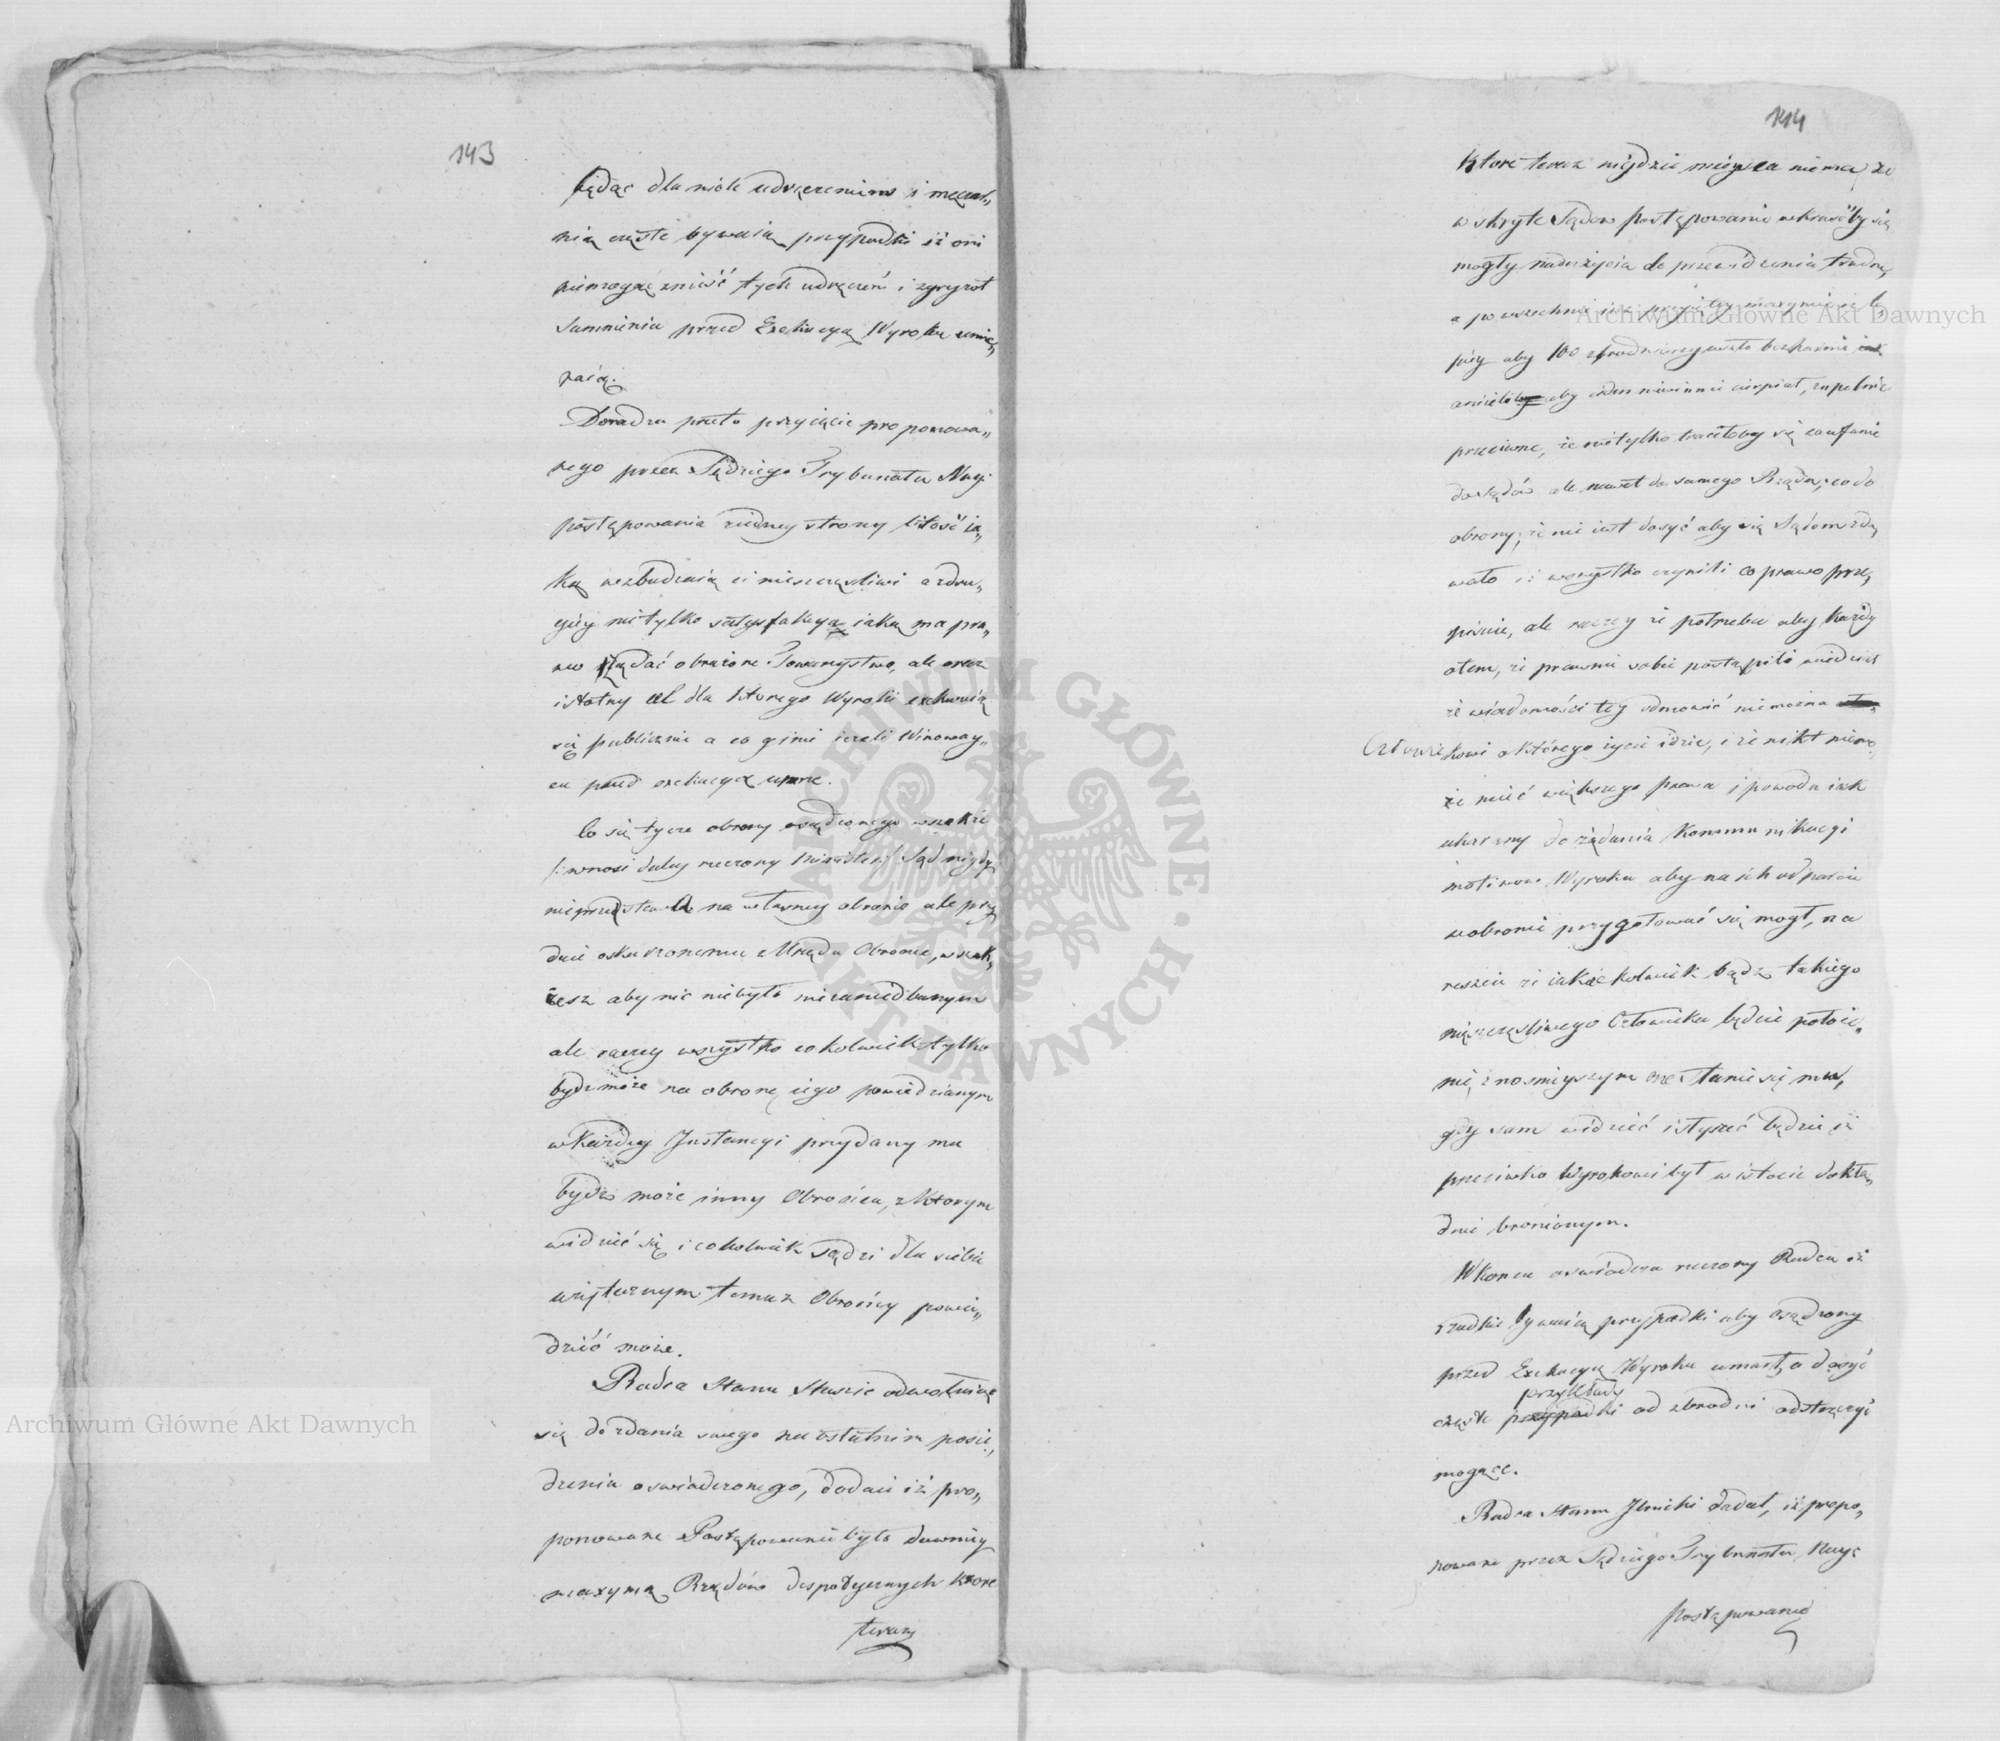 143
będąc dla nich udręczeniem i męczar„
nią częste bywaią przypadki iż oni
niemogąc znieść tych udręczeń i zgryzot
Sumnienia przed Exekucyą Wyroku umie„
raią.
Doradza przeto przyięcie proponowa„
nego przez Sędziego Trybunału Nayż:
postępowania z iedney strony litość ia„
ką wzbudzaią ci nieszczęśliwi a z dru„
giéy nietylko satysfakcya iaką ma pra„
wo żądać obrażone Towarzystwo, ale oraz
istotny cel dla którego Wyroki exekwuią
się publicznie a co ginie ieżeli Winoway„
ca przed exekucyą umrze.
Co się tycze obrony osądzonego wszakże
/: wnosi daley rzeczony Minister :/ Sąd nigdy
nieprzestawa na własney obronie ale przy
daie oskarżonemu z Urzędu Obrońcę, wszak„
żesz aby nic niebyło niezaniedbanym
ale raczey wszystko cokolwiek tylko
bydź może na obronę iego powiedzianym
w każdey Instancyi przydany mu
bydź może inny Obrońca, z którym
widzieć się i cokolwiek sądzi dla siebie
użytecznym temuż Obrońcy powie„
dzieć może.
Radca Stanu Staszic odwołuiąc
się do zdania swego na ostatnim posie„
dzeniu oświadczonego, dodaie iż pro„
ponowane Postępowanie było dawniey
maxymą Rządów despotycznych które
teraz
144
Które teraz nigdzie mieysca niema, że
w skryte Sądów postępowanie wkraść by się
mogły nadużycia do przewidzenia trudne,
a powszechnie iuż przyiętey maxymie iż le„
piéy aby 100 zbrodniarzy uszło bezkarnie
aniżeli aby ieden niewinnie cierpiał, zupełnie
przeciwne, że nietylko traciłoby się zaufanie
do Sądów ale nawet do samego Rządu; co do
obrony, że nie iest dosyć aby się Sądom zda„
wało iż wszystko czynili co prawo prze„
pisuie, ale raczey że potrzeba aby każdy
o tem, że prawnie sobie postąpiło wiedział
że wiadomości tey odmówić niemożna
Człowiekowi o którego życie idzie, i że nikt niemo„
że mieć większego prawa i powodu iak
ukarany do żądania kommunikacyi
motiwów Wyroku aby na ich odparcie
w obronie przygotować się mógł, na
reszcie że iakiekolwiek bądź takiego
nieszczęśliwego Człowieka będzie położe„
nie, znośnieyszym one stanie się mu,
gdy sam widzieć i słyszeć będzie iż
przeciwko Wyrokowi był w istocie dokła„
dnie bronionym.
W końcu oświadcza rzeczony Radca iż
rzadkie bywaią przypadki aby osądzony
przed Exekucyą Wyroku umarł, a dosyć
przykłady
częste od zbrodni odstręczyć
mogące.
Radca Stanu dodał, iż propo„
nowane przez Sędziego Trybunału Nayż:
postępowanie
Archiwum Główne Akt Dawnych
Archiwum Główne Akt Dawnych
ARCHIWUM GŁÓWNE · AKT DAWNYCH ·